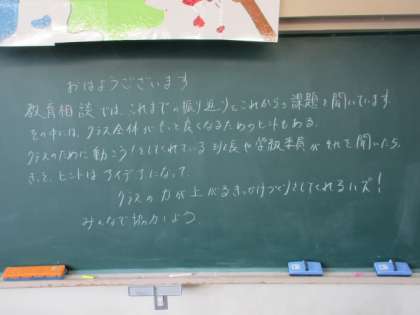 おはようございます
教育相談では、これまでの振り返りとこれからの課題を聞いています。
その中には、クラス全体がもっと良くなるためのヒントもある。
クラスのために動こうとしてくれている班長や学級委員がそれを聞いたら、
きっと、ヒントはアイデアになって、
クラスの力が上がるきっかけづくりをしてくれるハズ!
みんなで協力しよう